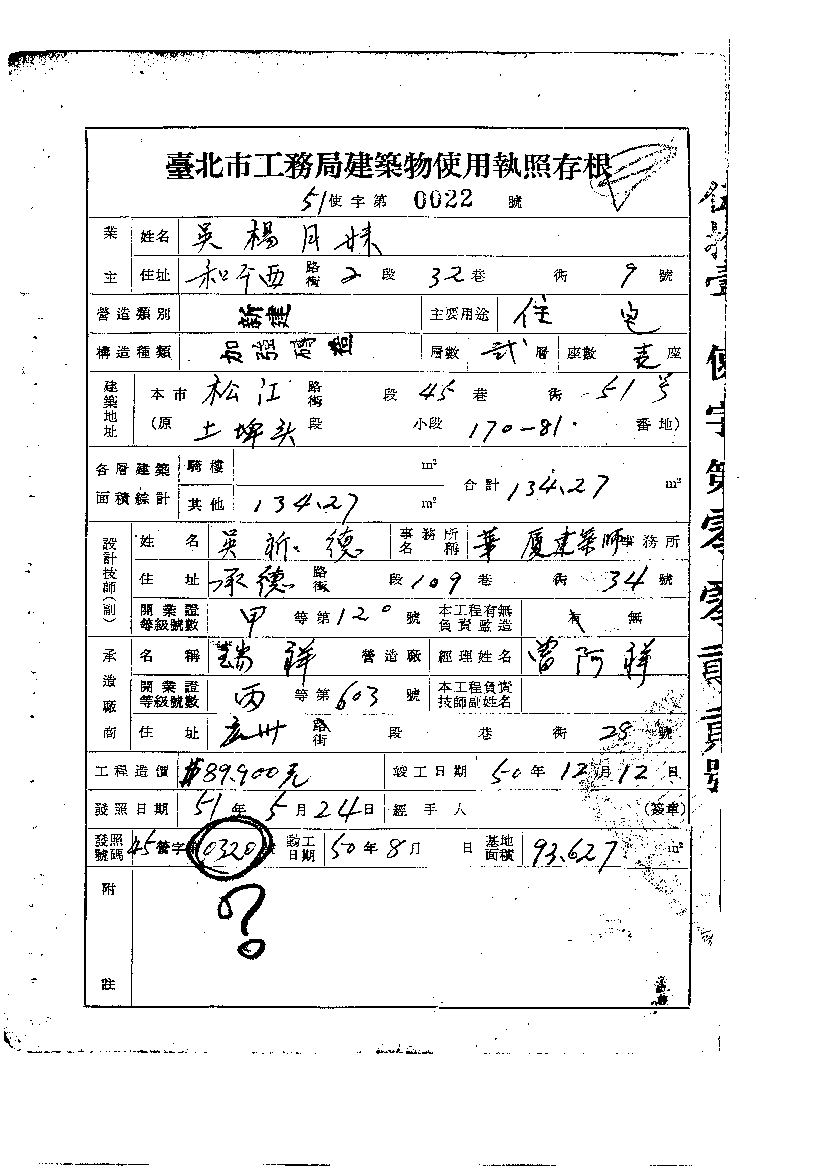 臺北市工務局建築物使用執照存根
51使字第 0022 號
業主 姓名 吳楊月妹
住址 和平西路街 2段 32巷 衖 9號
營造類別 新建 主要用途 住宅
構造種類 加強磚造 層數 弍層 座數 壱座
建築地址 本市 松江路街 段 45巷 衖 51号
(原 土埤头段 小段 170-81 番地)
各層建築面積綜計 騎樓 m² 合計 134.27 m²
其他 134.27 m²
設計技師(副) 姓名 吳新德 事務所名稱 華廈建築師事務所
住址 承德路街 段 109巷 衖 34號
開業證等級號數 甲等第120號 本工程有無負責監造 有 無
承造廠商 名稱 瑞祥營造廠 經理姓名 曾阿祥
開業證等級號數 丙等第603號 本工程負責技師副姓名
住址 広州路街 段 巷 衖 28號
工程造價 $89.900元 竣工日期 50年12月12日
發照日期 51年5月24日 經手人 (簽章)
發照號碼 45營字 0320 動工日期 50年8月 日 基地面積 93.627 m²
?
附註
伍拾壹使字第零零貳貳號